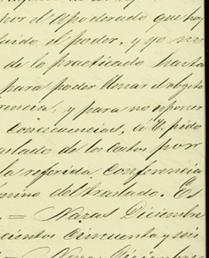 por el Apoderado que hoy
el poder, y yo no
de lo practicado hasta
para poder llenar el objeto
y para no esponer
consecuencias, á V. pido
traslado de los autos por
la referida conferencia
termino del traslado. Es
= Nazas Diciembre
cincuenta y seis